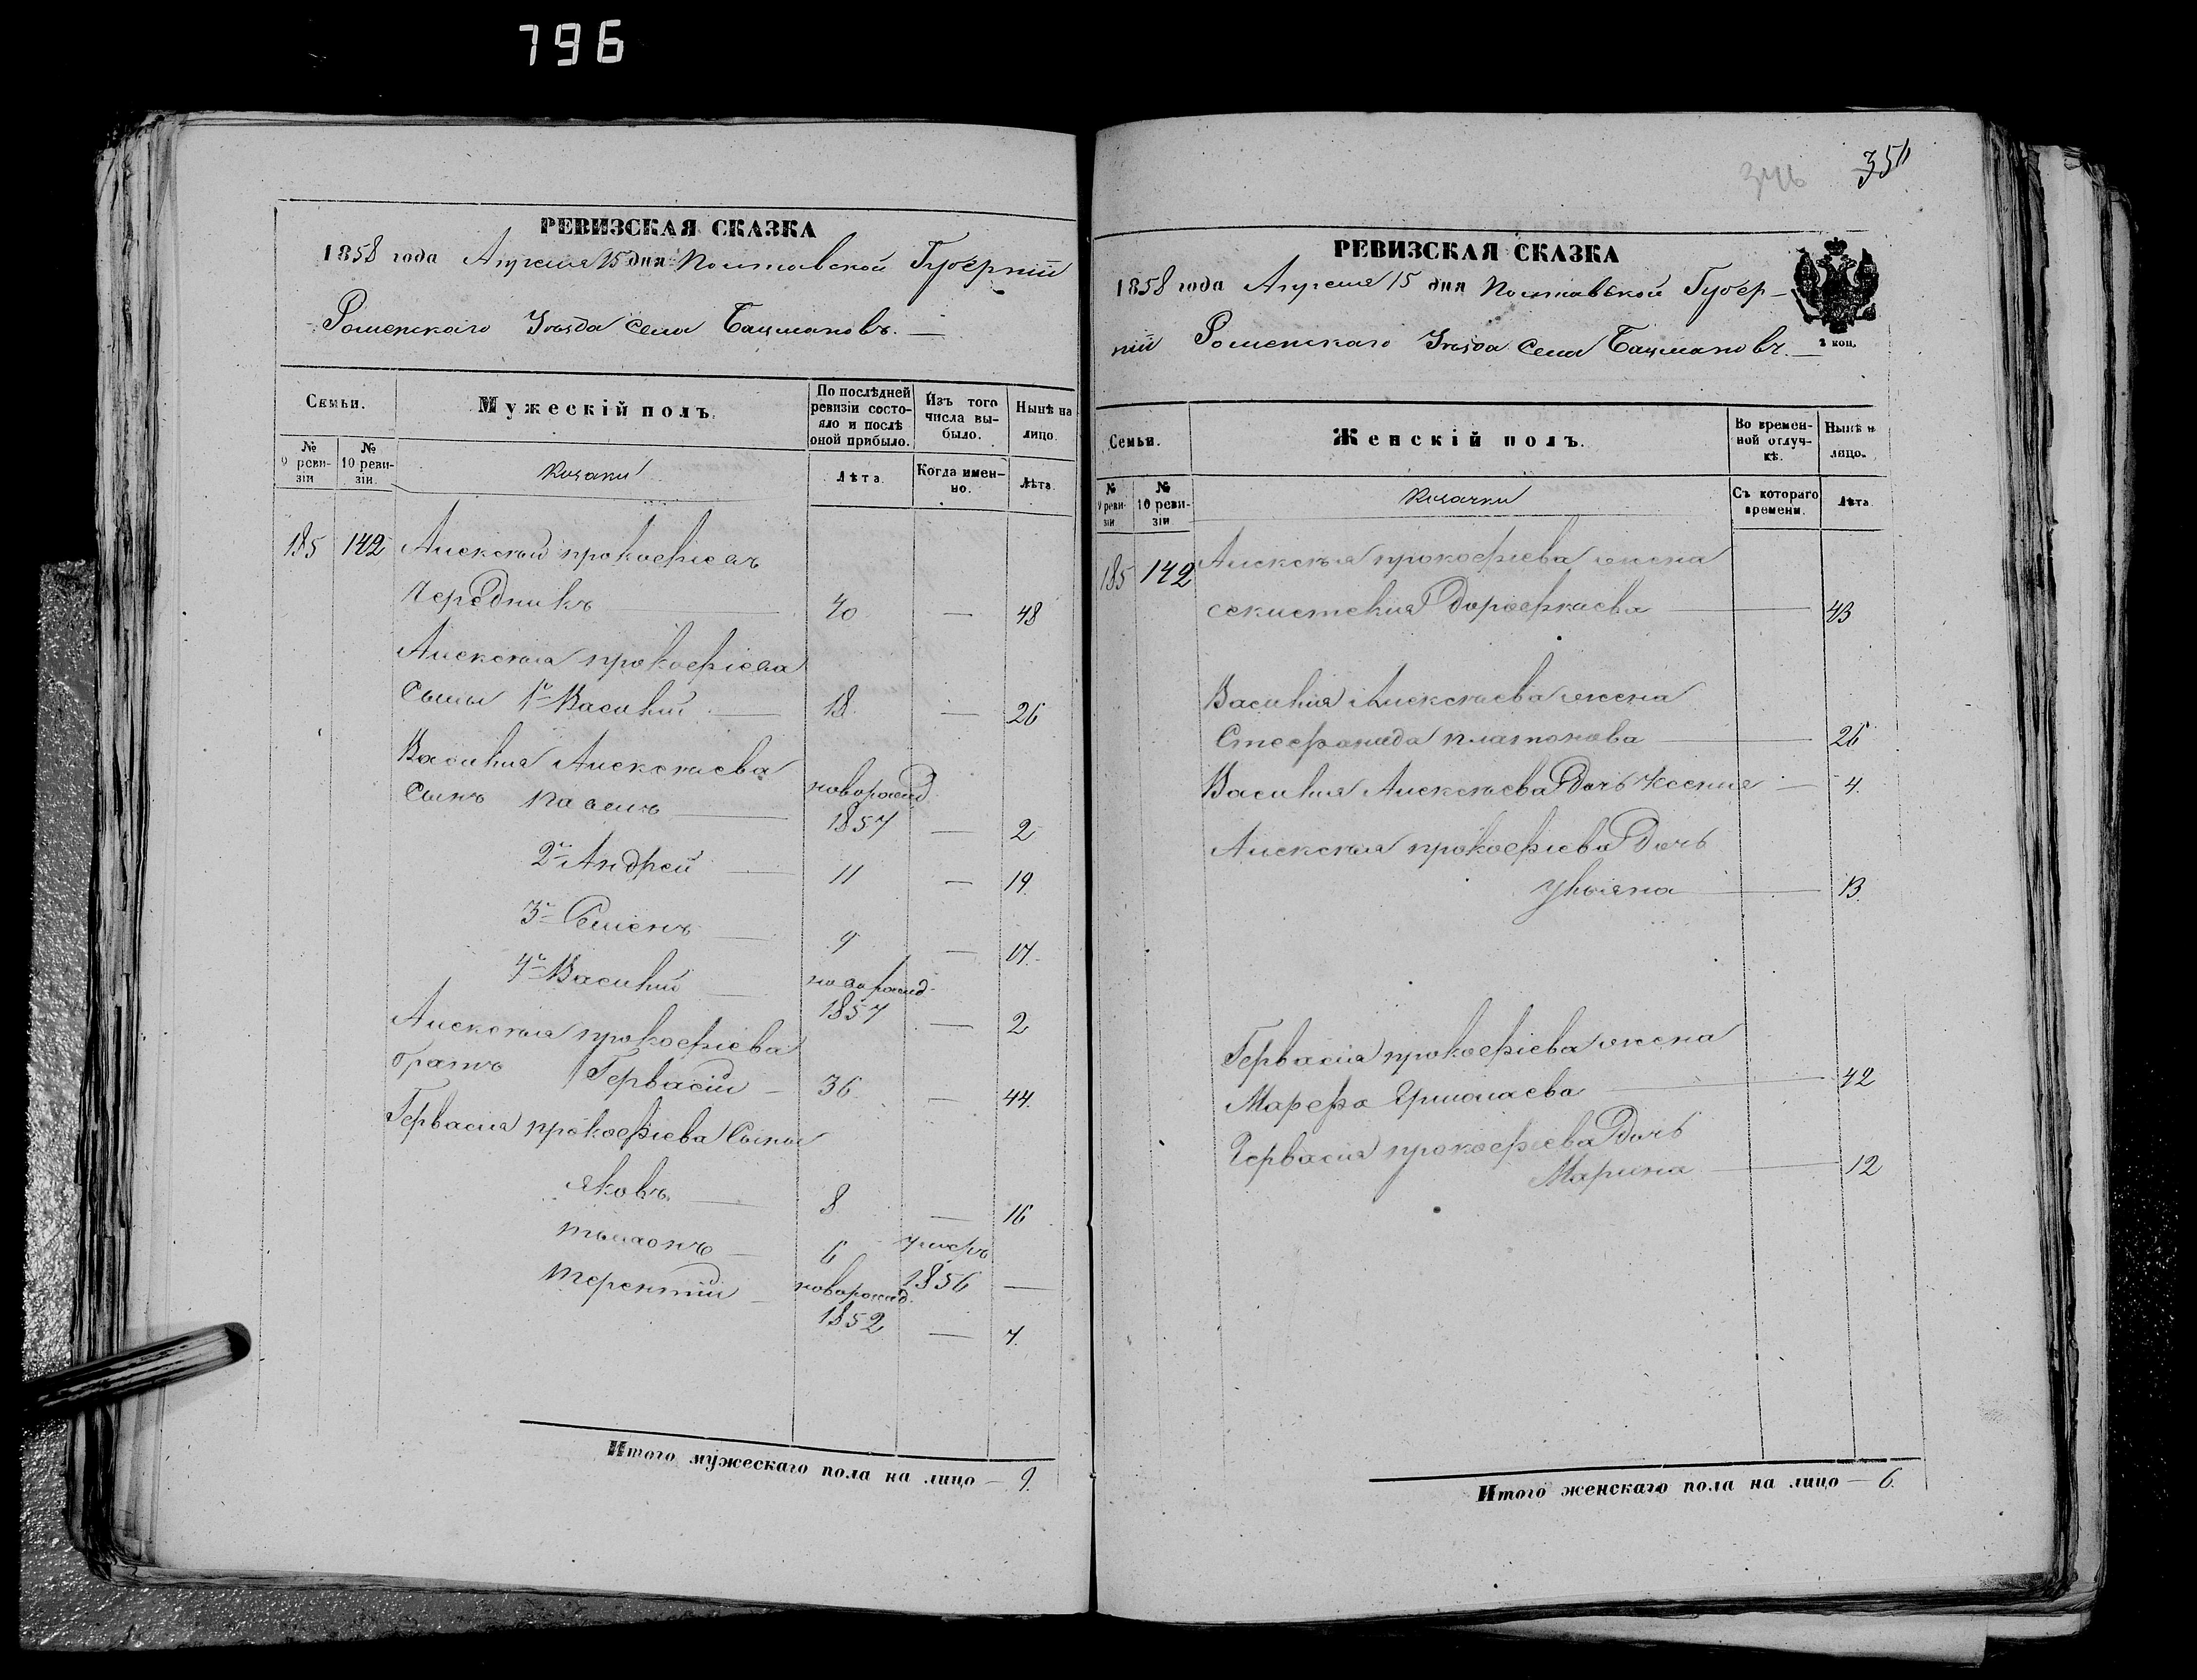 796
РЕВИЗСКАЯ СКАЗКА
1858 года Апреля 15 дня Полтавской Губерніи
Роменскаго Уѣзда Села Бацмановъ.
Семьи.
Мужескій полъ.
По послѣдней ревизіи состояло и послѣ оной прибыло.
Изъ того числа выбыло.
Нынѣ на лицо.
№ 9 ревизіи
№ 10 ревизіи.
Козаки
Лѣта.
Когда именно.
Лѣта
185 142 Алексѣй прокофіевъ
Чередникъ 40 — 48
Алексѣя прокофіева
Сыны 1й Василий 18 — 26
Василия Алексѣева новорожд
Сынъ павелъ 1857 — 2
2й Андрей 11 — 19
3й Семенъ 9 — 17
4й Василий новорожд.
1857 — 2
Алексѣя прокофіева
братъ Гервасій 36 — 44
Гервасия прокофіева Сыны
яковъ 8 — 16
6 умеръ
1856 —
терентій новорожд.
1852 — 7.
Итого мужескаго пола на лицо — 9.
346
351
РЕВИЗСКАЯ СКАЗКА
1858 года Апреля 15 дня Полтавской Губер-
ніи Роменскаго Уѣзда Села Бацмановъ.
2 коп.
Семьи.
Женскій полъ.
Во временной отлучкѣ.
Нынѣ н лицо.
№ 9 ревизіи
№ 10 ревизіи
Козачки
Съ котораго времени.
Лѣта
185 142 Алексѣя прокофіева жена
Дорофѣева 43
Василия Алексѣева жена
Стефанида платонова 26
Василия Алексѣева Дочь Ксения — 4.
Алексѣя прокофіева Дочь
Ульяна 13.
Гервасія прокофіева жена
Марфа Ермолаева 42
Гервасия прокофіева Дочь
Марина 12
Итого женскаго пола на лицо — 6.